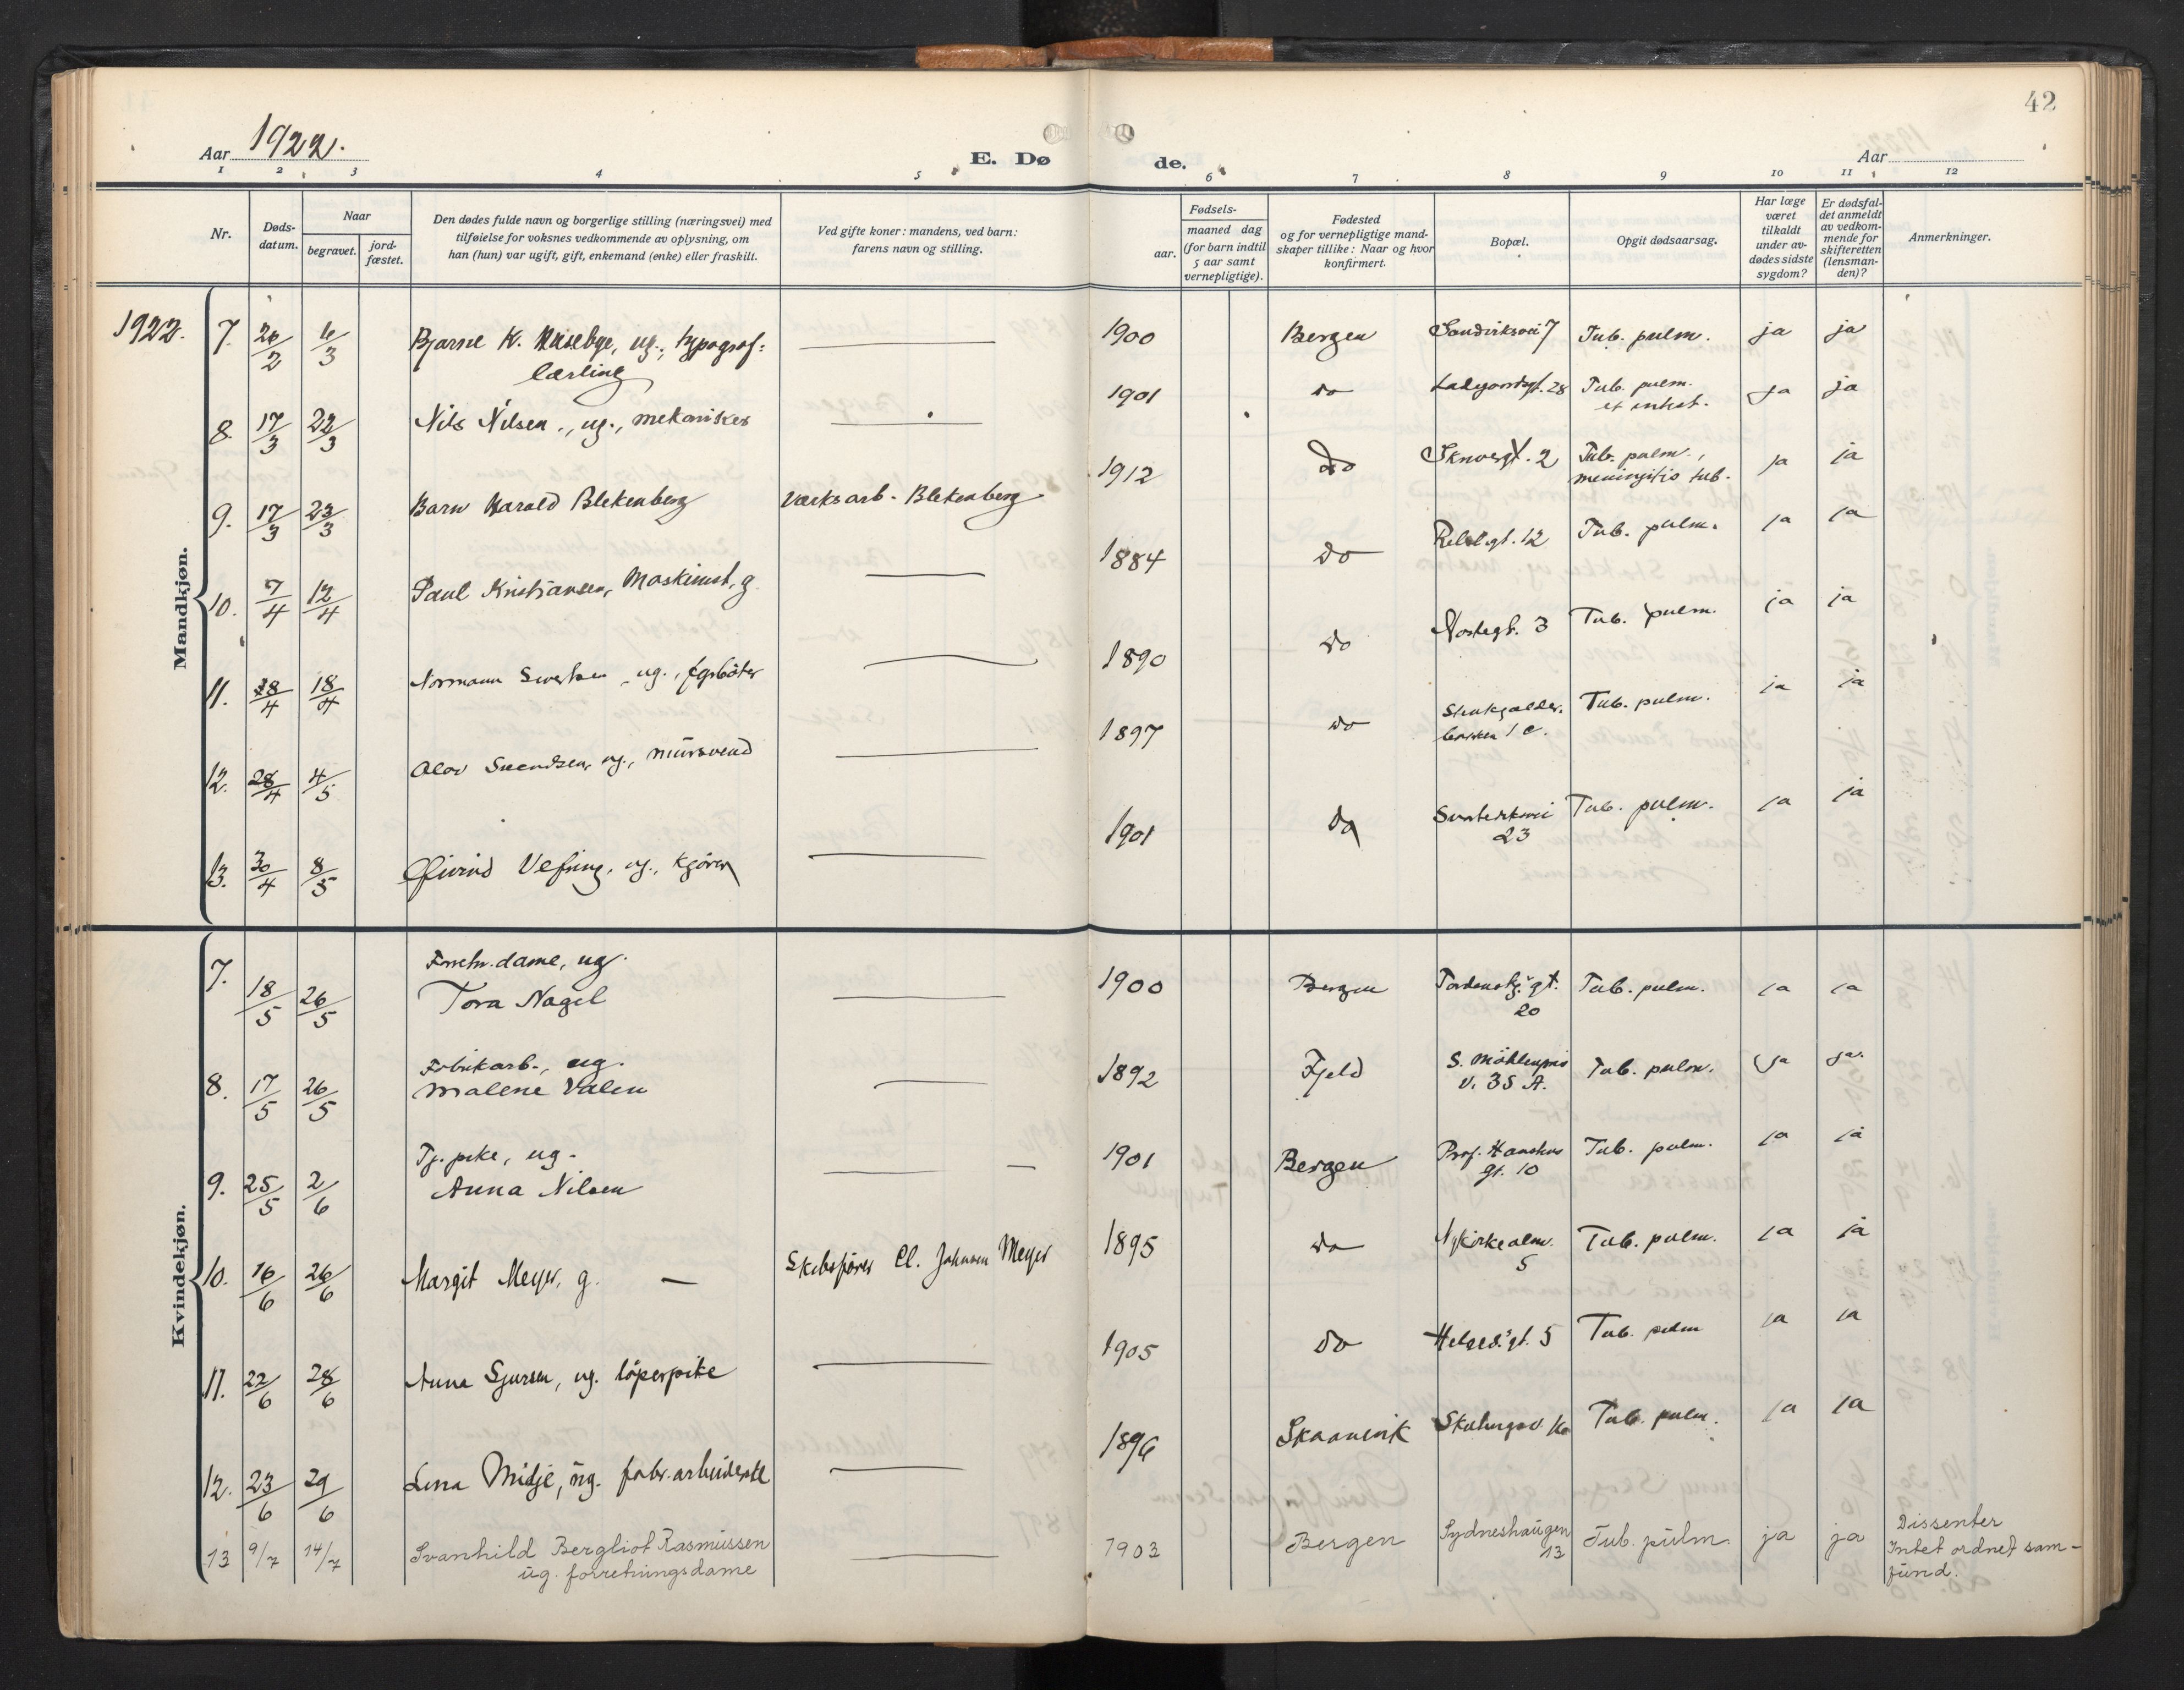 42
Aar 1922.
E. Dø de.
Aar
1 2 3 4 5 6 7 8 9 10 11 12
Nr.
Døds-
datum.
Naar
begravet.
jord-
fæstet.
Den dødes fulde navn og borgerlige stilling (næringsvei) med
tilføielse for voksnes vedkommende av oplysning, om
han (hun) var ugift, gift, enkemand (enke) eller fraskilt.
Ved gifte koner: mandens, ved barn:
farens navn og stilling.
Fødsels-
aar.
maaned dag
(for barn indtil
5 aar samt
vernepligtige).
Fødested
og for vernepligtige mand-
skaper tillike: Naar og hvor
konfirmert.
Bopæl.
Opgit dødsaarsag.
Har læge
været
tilkaldt
under av-
dødes sidste
sygdom?
Er dødsfal-
det anmeldt
av vedkom-
mende for
skifteretten
(lensman-
den)?
Anmerkninger.
Mandkjøn.
1922. 7. 26/2 6/3 Bjarne K. Husebye, ug., typograf- 1900 Bergen 7 Tub. pulm. ja ja
lærling
8. 17/3 22/3 Nils Nilsen, ug., mekaniker 1901 do Ladegaardsgt. 28 Tub. pulm. ja ja
et intest.
9. 17/3 23/3 Barn Harald Blekenberg Værksarb. Blekenberg 1912 do 2 Tub. pulm., ja ja
meningitis tub.
10. 7/4 12/4 Paul Kristiansen, Maskinist, g. 1884 do 12 Tub. pulm. ja ja
11. 18/4 Normann ug., 1890 do Nostegt. 3 Tub. pulm. ja ja
12. 28/4 4/5 Olav Svendsen, ug., mursvend 1897 do 1 c. Tub. pulm. ja ja
13. 30/4 8/5 Øivind Vefring, ug., kjører 1901 do Tub. pulm. ja ja
23
Kvindekjøn.
7. 18/5 26/5 Forretn.dame, ug.
Tora Nagel 1900 Bergen Tordenskj. gt. Tub. pulm. ja ja
20
8. 17/5 26/5 Fabrikarb., ug.
Malene Valen 1892 Fjeld S. Möhlenpris Tub. pulm. ja ja
v. 35 A.
9. 25/5 2/6 Tj. pike, ug.
Anna Nilsen 1901 Bergen Prof. Hansteens Tub. pulm. ja ja
gt. 10
10. 16/6 26/6 Margit Meyer, g. Skibsfører Cl. Johnsen Meyer 1895 do Nykirkealm. Tub. pulm. ja ja
5
11. 22/6 28/6 Anna Sjursen, ug. löperpike 1905 do Helgesgt. 5 Tub. pulm ja ja
12. 23/6 29/6 Lina Midje, ug. fabr.arbeiderske 1896 Skaanevik Tub. pulm. ja ja
13 9/7 14/7 Svanhild Bergliot Rasmussen 1903 Bergen Sydneshaugen Tub. pulm. ja ja Dissenter
ug. forretningsdame 13 Intet ordnet sam-
fund.